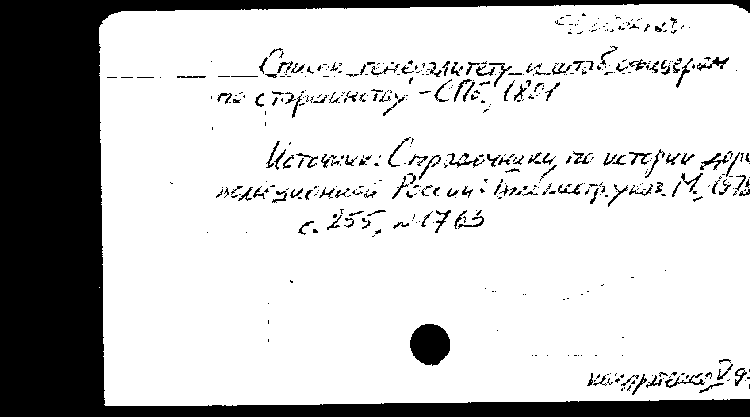 Список генералитету и штаб офицерам
по старшинству. - СПб., 1801
Источник: Справочники по истории дорево-
люционной России: Библиогр. указ. М., 1978
с. 255, №1763
Кондратенко V 93